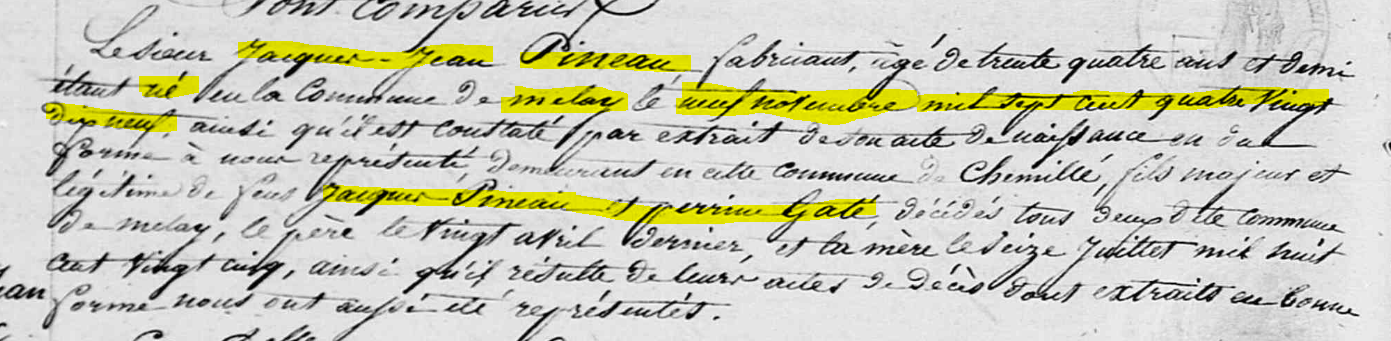 Sont comparus
Le sieur Jacques-Jean Pineau, fabricant, âgé de trente quatre ans et demi
étant né en la Commune de melay le neuf novembre mil sept cent quatre vingt
dix neuf ainsi qu'il est constaté par extrait de son acte de naissance en due
forme à nous représenté, demeurant en cette commune de Chemillé, fils majeur et
légitime de feus Jacques Pineau et perrine Gaté, décédés tous deux dite commune
de melay, le père le vingt avril dernier, et la mère le seize Juillet mil huit
cent vingt cinq, ainsi qu'il résulte de leurs actes de décès dont extraits en bonne
forme nous ont aussi été représentés.